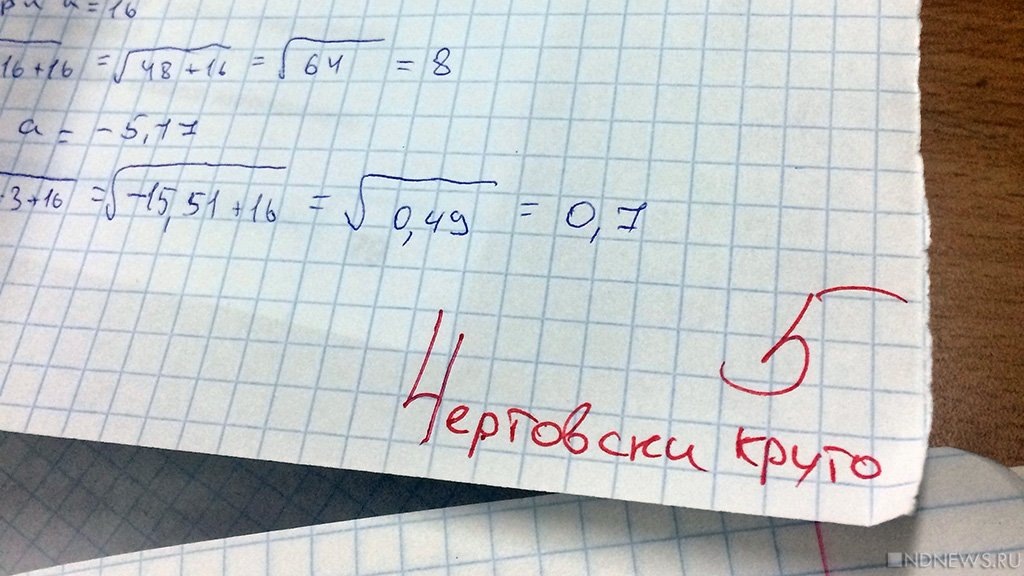 a = 16
16+16 = √48+16 = √64 = 8
a = -5,17
3+16 = √-15,51+16 = √0,49 = 0,7
5
Чертовски круто
NDNEWS.RU